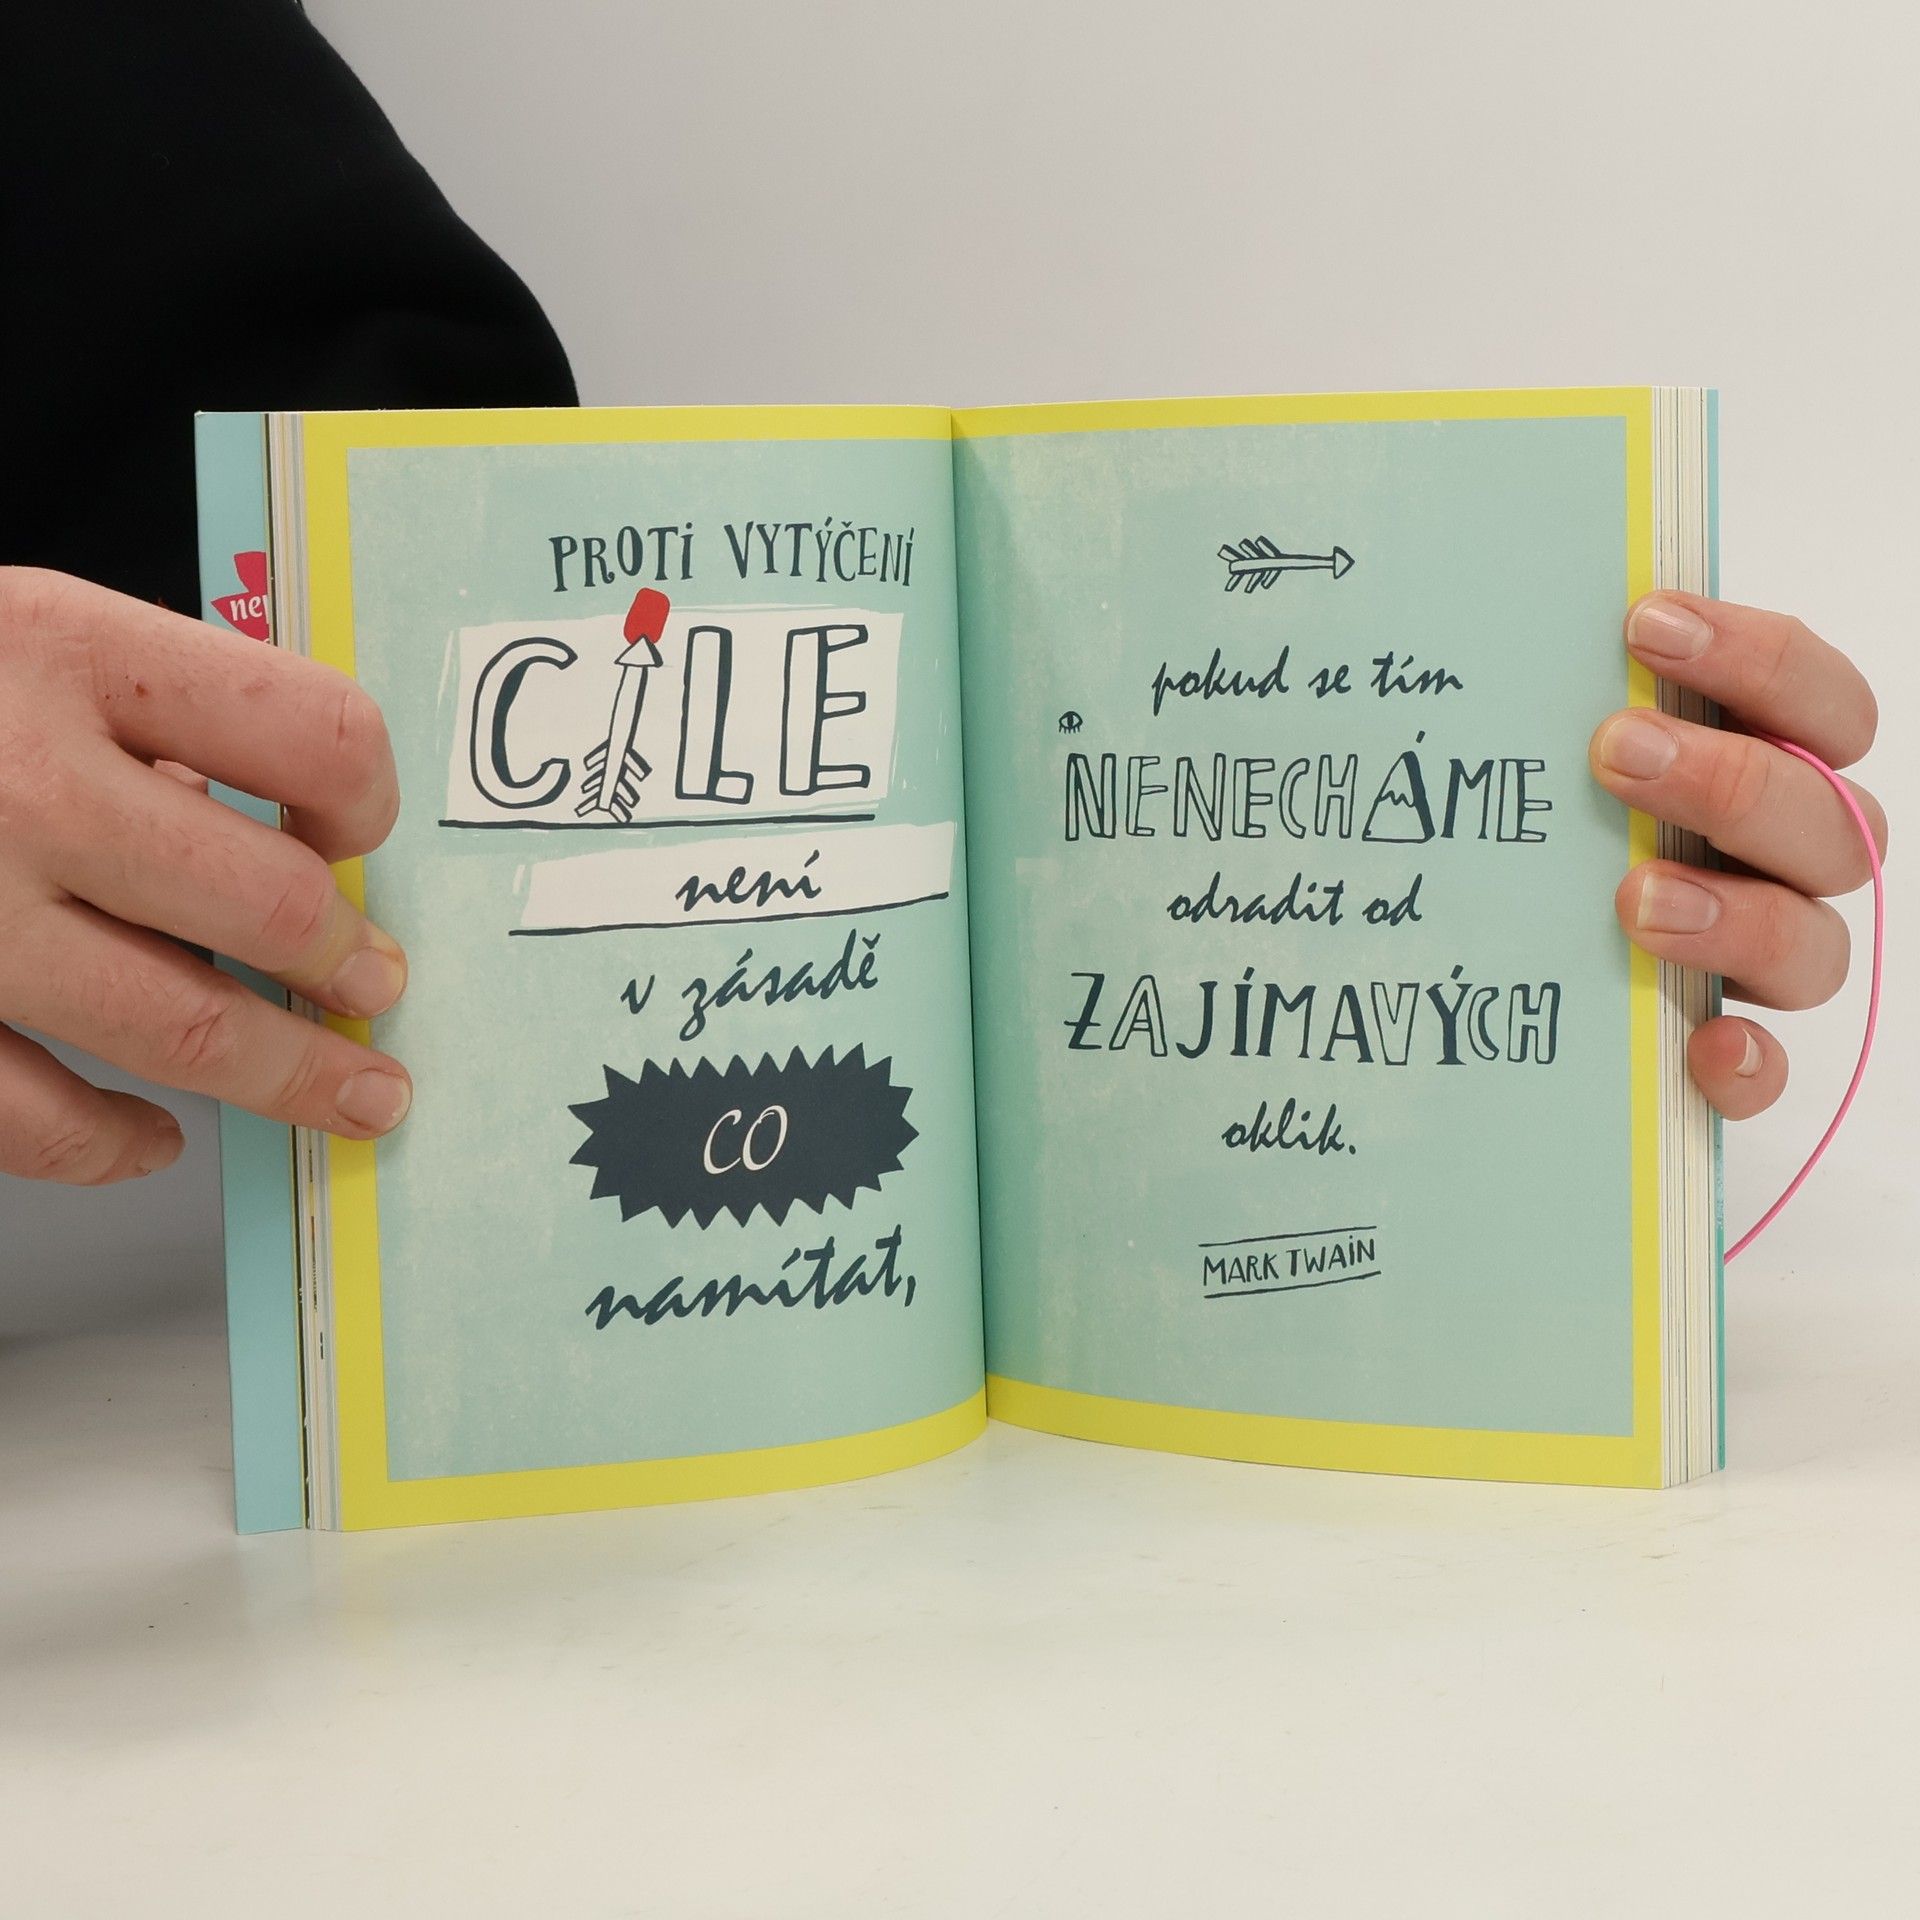 PROTI VYTÝČENÍ
CÍLE
není
v zásadě
CO
namítat,
pokud se tím
NENECHÁME
odradit od
ZAJÍMAVÝCH
oklik.
MARK TWAIN